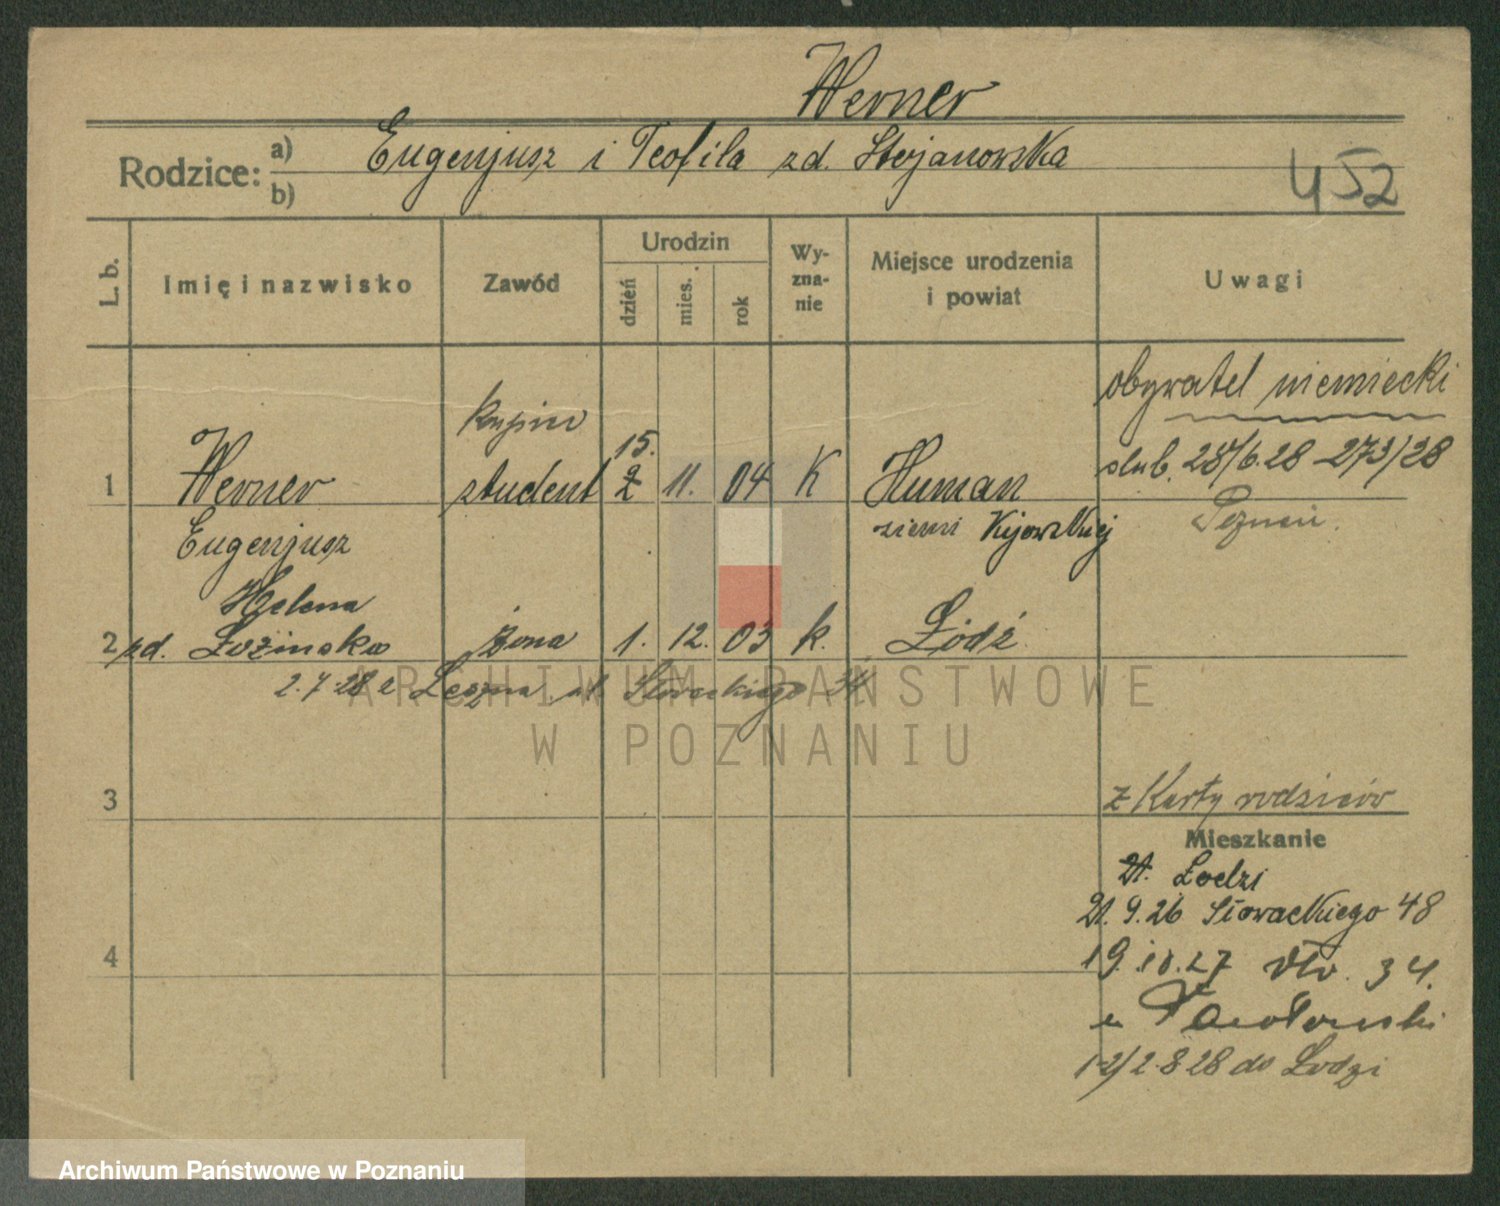 Werner
Rodzice: a) Eugenjusz i Teofila zd. Stojanowska
b)
452
L. b.
Imię i nazwisko
Zawód
Urodzin
dzień
mies.
rok
Wy-
zna-
nie
Miejsce urodzenia
i powiat
Uwagi
obywatel niemiecki
kupiec
15.
ślub. 28/6.28 273/28
1 Werner student 2 11. 04 K Human
Poznań.
Eugenjusz
ziemi Kijowskiej
Helena
2 zd. Łozińska żona 1. 12. 03 k. Łódź
2.7.28 z Leszna ul. Słowackiego 34
ARCHIWUM PAŃSTWOWE
W POZNANIU
3
z Karty rodziców
Mieszkanie
z Łodzi
21.9.26 Słowackiego 48
4
19.10.27 34.
u
1-2/2.8.28 do Łodzi
Archiwum Państwowe w Poznaniu